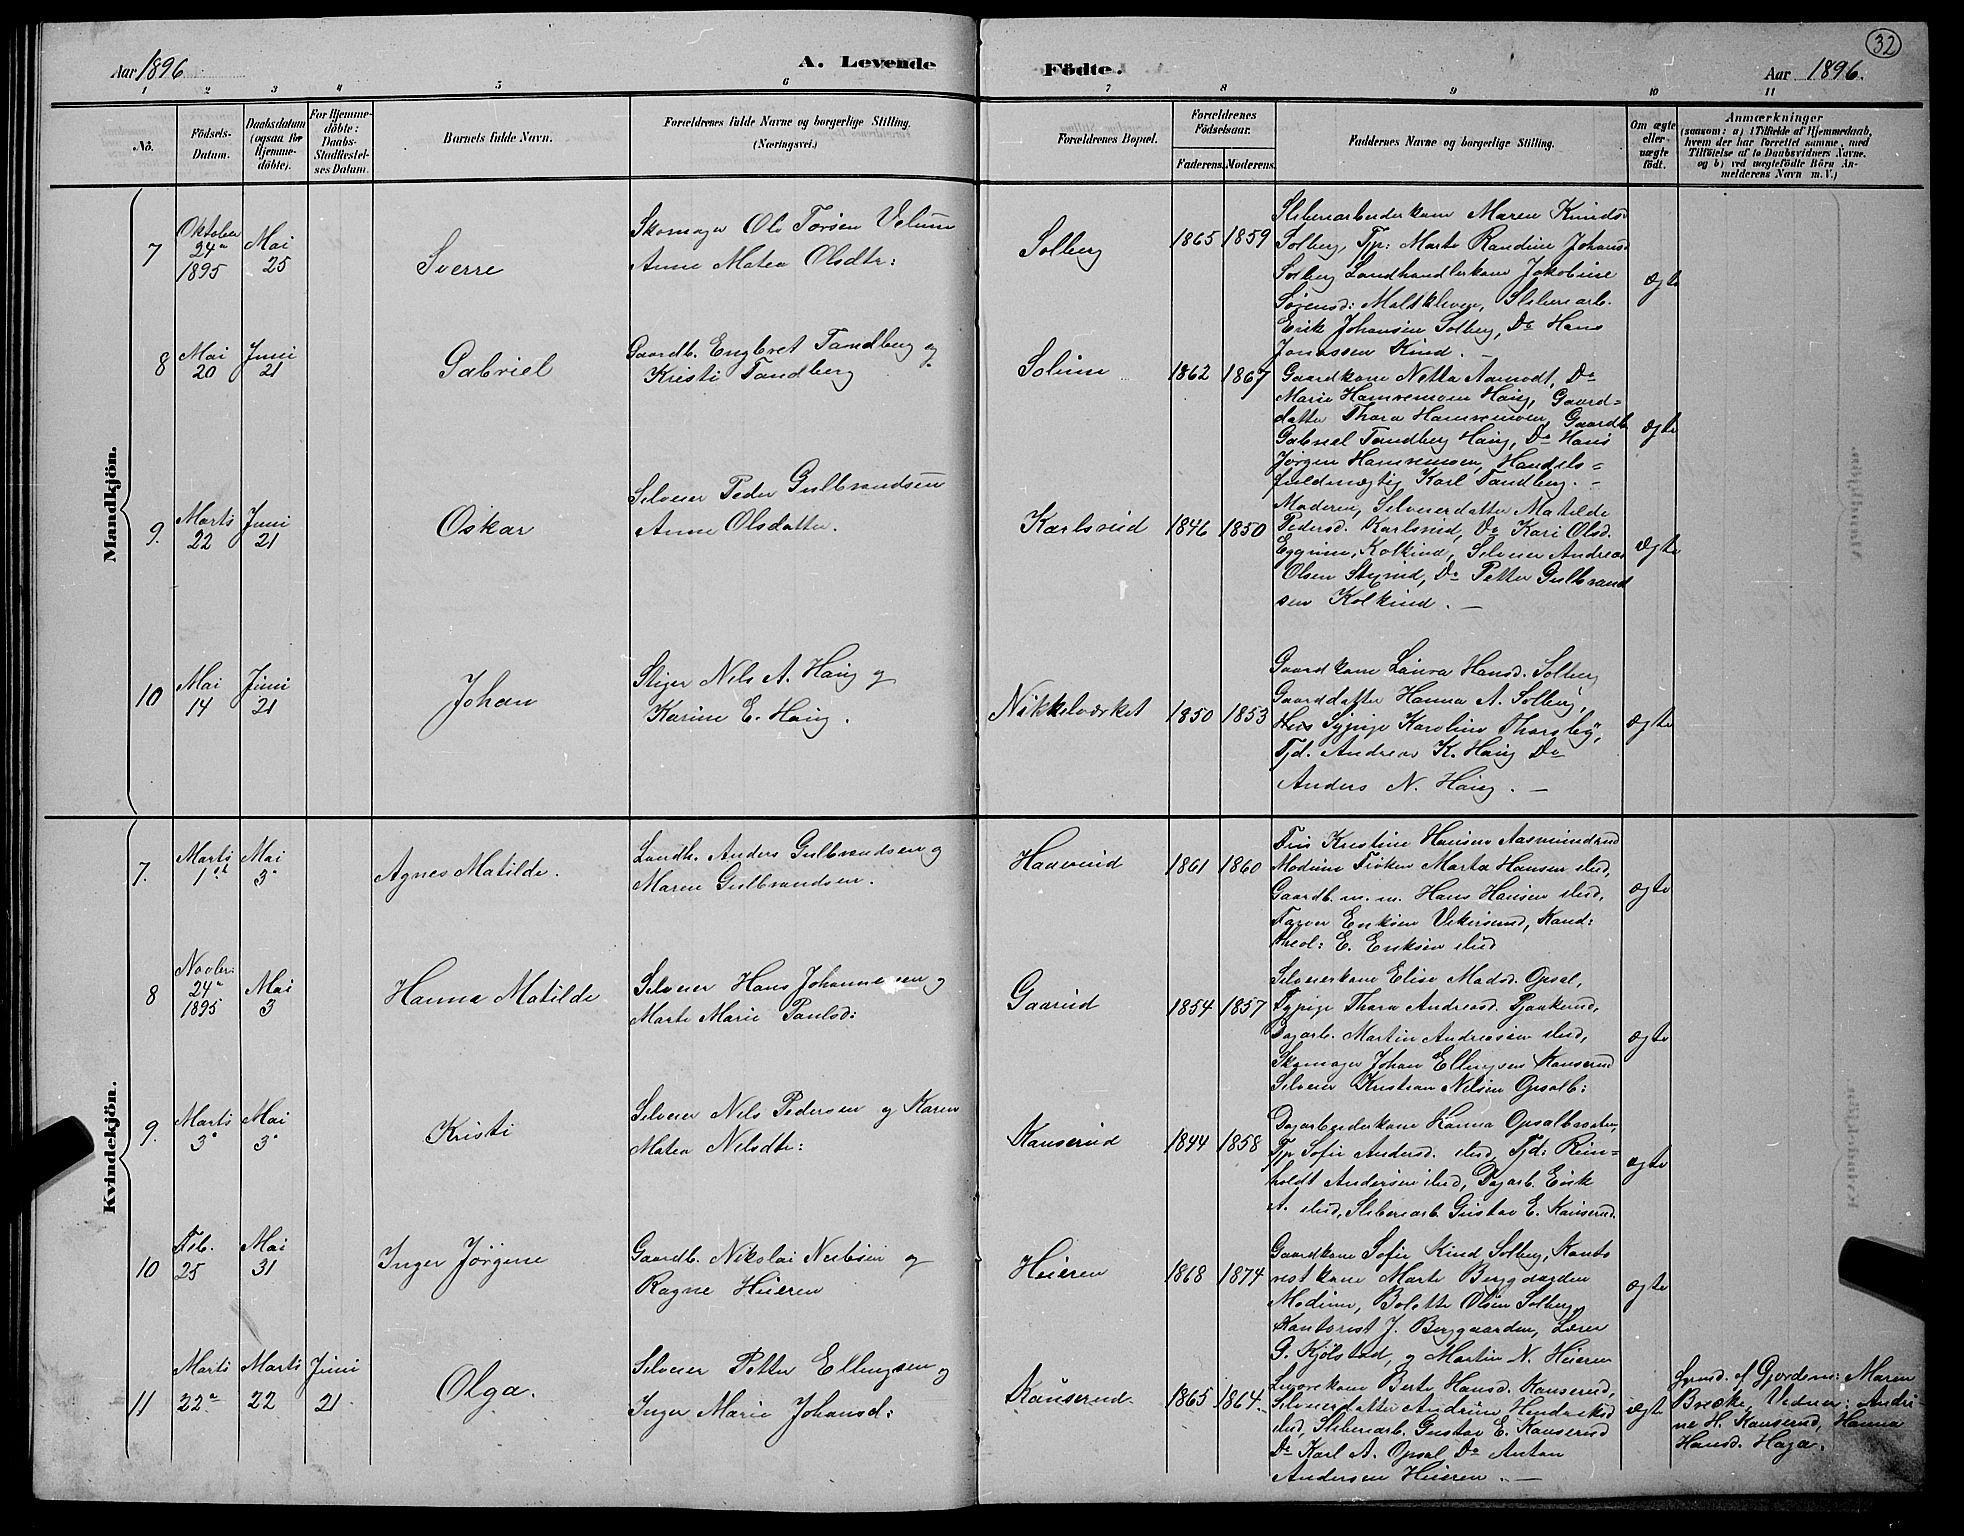 32
Aar 1896
A. Levende
Födte.
Aar 1896.
1 2 3 4 5 6 7 8 9 10 11
No.
Födsels-
Datum.
Daabsdatum
(ogsaa for
Hjemme-
döbte).
For Hjemme-
döbte:
Daabs-
Stadfæstel-
ses Datum.
Barnets fulde Navn.
Forældrenes fulde Navne og borgerlige Stilling.
(Næringsvei.)
Forældrenes Bopæl.
Forældrenes
Födselsaar.
Faderens. Moderens.
Faddernes Navne og borgerlige Stilling.
Om ægte
eller
uægte
födt.
Anmærkninger
(saasom: a) i Tilfælde af Hjemmedaab,
hvem der har forrettet samme, med
Tilföielse af to Daabsvidners Navne.
og b) ved uægtefödte Börn An-
melderens Navn m. V.)
Mandkjön.
7
Oktober
24de
1895
Mai
25
Sverre
Skomager Ole Torsen Velum
Anne Matea Olsdtr:
Solberg
1865 1859
Sliberiarbeiderkone Maren Kinds-
Solberg, Tp: Marte Randine Johansd
Solberg Landhandlerkone Jakobine
Sørensd: Maltkleven, Sliberiarb.
Erik Johansen Solberg, Do Hans
Jonassen Kind. –
ægte
8
Mai
20
Juni
21
Gabriel
Gaardb. Engbret Tandberg og
Kristi Tandberg
Solum
1862 1867
Gaardkone Netta Aamodt, Do
Marie Hamremoen Haug, Gaard=
datter Thora Hamremoen, Gaardb.
Gabriel Tandberg Haug, Do Hans
Jørgen Hamremoen, Handels=
fuldmægtig Karl Tandberg. –
ægte
9.
Marts
22
Juni
21
Oskar
Selveier Peder Gulbrandsen
Anne Olsdatter.
Karlsrud
1846 1850
Moderen, Selveierdatter Matilde
Pedersd. Karlsrud, Do Kari Olsd.
Eggum, Kolkind, Selveier Andreas
Olsen Stigrud, Do Petter Gulbrand
sen Kolkind. –
ægte
10
Mai
14
Juni
21
Johan
Stiger Nils A. Haug og
Karine E. Haug.
Nikkelværket
1850 1853
Gaardkone Laura Hansd. Solberg
Gaarddatter Hanna A. Solberg,
Sypige Karoline Thorsby,
Tjd. Andreas K. Haug Do
Anders N. Haug. –
ægte
Kvindekjön.
7.
Marts
1ste
Mai
3
Agnes Matilde.
Landh. Anders Gulbrandsen og
Maren Gulbrandsen.
Haaverud
1861 1860
Fru Kristine Hansen Aasmundrud
Modum Frøken Marta Hansen ibid,
Gaardb. m.m. Hans Hansen ibid,
Farver Eriksen Vikersund, Kand:
theol: E. Eriksen ibid
ægte
8
Novbr:
24de
1895
Mai
3
Hanna Matilde
Selveier Hans Johannesen og
Marte Marie Paulsd:
Gaarud
1854 1857
Selveierkone Elise Madsd. Opsal,
Sypige Thora Andreasd. Tjaakerud,
Dagarb. Martin Andreasen ibid,
Skomager Johan Ellingsen Kanserud
Selveier Kristian Nilsen Opsalb:
ægte
9.
Marts
3
Mai
3
Kristi
Selveier Nils Pedersen og Karen
Matea Nilsdtr:
Kanserud
1844 1858
Dagarbeiderkone Hanna Opsalbraaten,
Tp Sofie Andersd. ibid, Tjd: Rein=
holdt Andersen ibid, Dagarb. Erik
A. ibid, Sliberiarb. Gustav E. Kanserud.
ægte
10
Feb.
25
Mai
31
Inger Jörgine
Gaardb. Nikolai Neubsen og
Ragne Heieren
Heieren
1868 1874
Gaardkone Sofie Kind Solberg, Kanto
ristkone Marte Berggaarden
Modum, Bolette Olsen Solberg,
Kantorist J. Berggaarden, Lærer
G. Kjölstad, og Martin N. Heieren
ægte
11
Marts
22de
Marts
22
Juni
21
Olga.
Selveier Petter Ellingsen og
Inger Marie Johansd:
Kanserud
1865 1864
Berte Hansd. Kanserud,
Selveierdatter Andrine Hendriksd
ibid, Sliberiarb. Gustav E. Kanserud
Do Karl A. Opsal Do Anton
Andersen Heieren. –
ægte
Hjemd. af Gjordem: Maren
Breske, Vidner: Andri-
ne H. Kanserud, Hanna
Hansd. Haga.